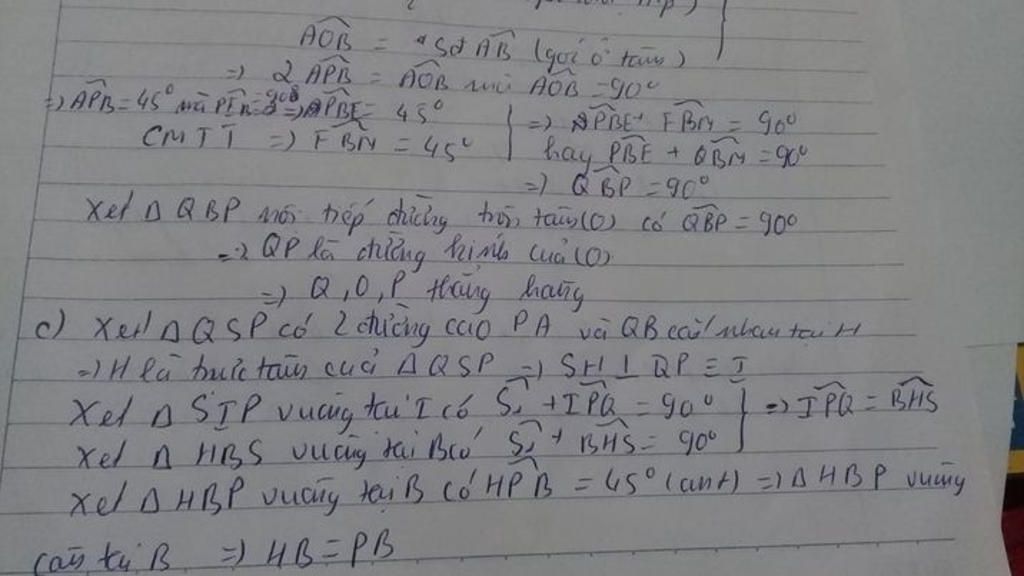 AOB = "Sđ AB (góc ở tâm)
=> 2 APB = AOB mà AOB = 90°
=> APB = 45° mà PEB = 90° => PBE = 45°
CMTT => FBM = 45°
=> PBE + FBM = 90°
hay PBE + QBM = 90°
=> QBP = 90°
Xét Δ QBP nội tiếp đường tròn tâm (O) có QBP = 90°
=> QP là đường kính của (O)
=> Q, O, P thẳng hàng
c) Xét Δ QSP có 2 đường cao PA và QB cắt nhau tại H
=> H là trực tâm của Δ QSP => SH ⊥ QP ≡ I
Xét Δ SIP vuông tại I có S₁ + IPQ = 90°
Xét Δ HBS vuông tại B có S₁ + BHS = 90°
=> IPQ = BHS
Xét Δ HBP vuông tại B có HPB = 45° (cmt) => Δ HBP vuông
cân tại B => HB = PB